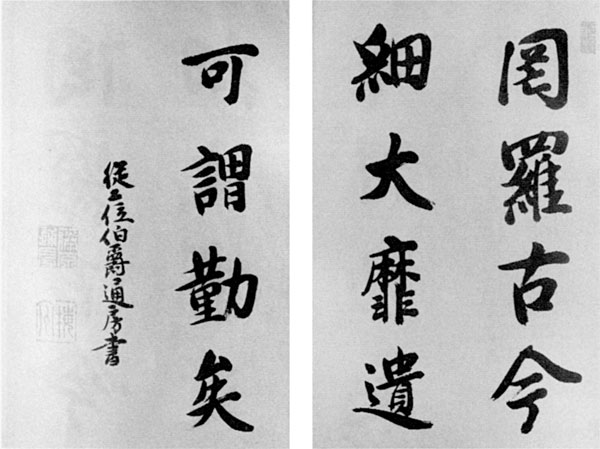 罔羅古今
細大靡遺
可謂勤矣
從二位伯爵通房書